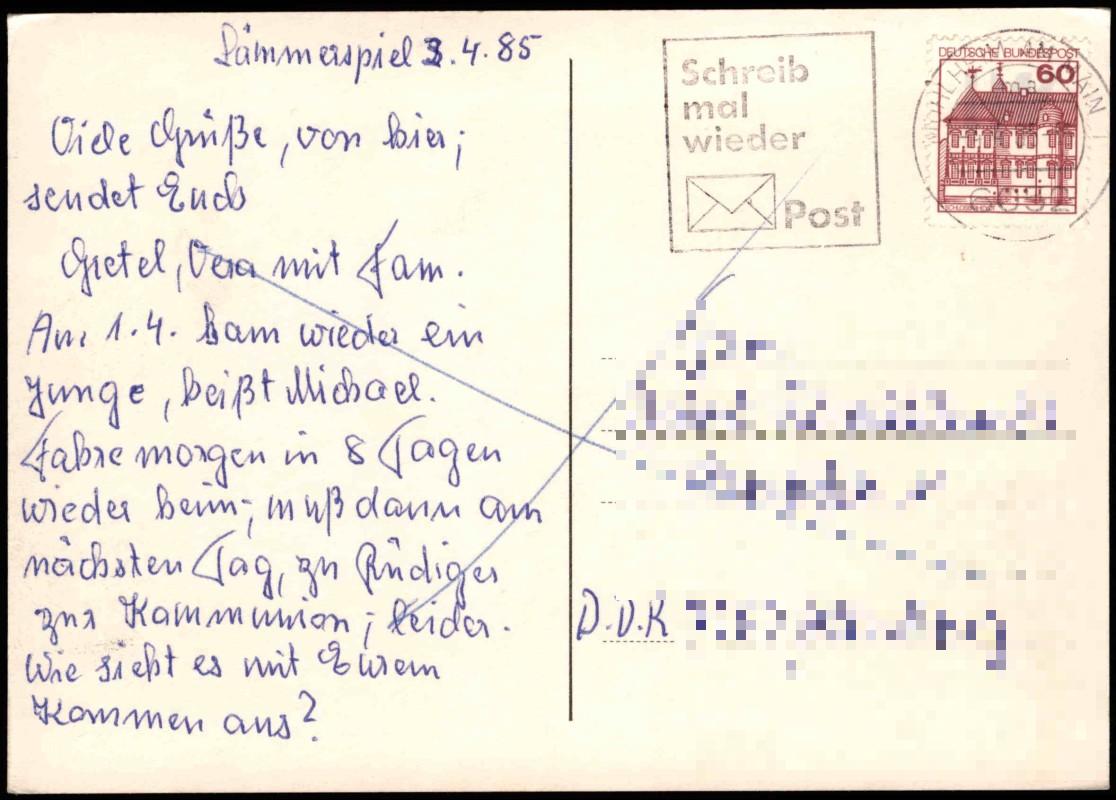 Lämmerspiel 3.4.85
Viele Grüße, von hier;
sendet Euch
Gretel, Vera mit Fam.
Am 1.4. kam wieder ein
Junge, heißt Michael.
Fahre morgen in 8 Tagen
wieder heim; muß dann am
nächsten Tag, zu Rüdiger
zur Kommunion; leider.
Wie sieht es mit Eurem
Kommen aus?
Schreib
mal
wieder
Post
DEUTSCHE BUNDESPOST
60
6052
D.D.R